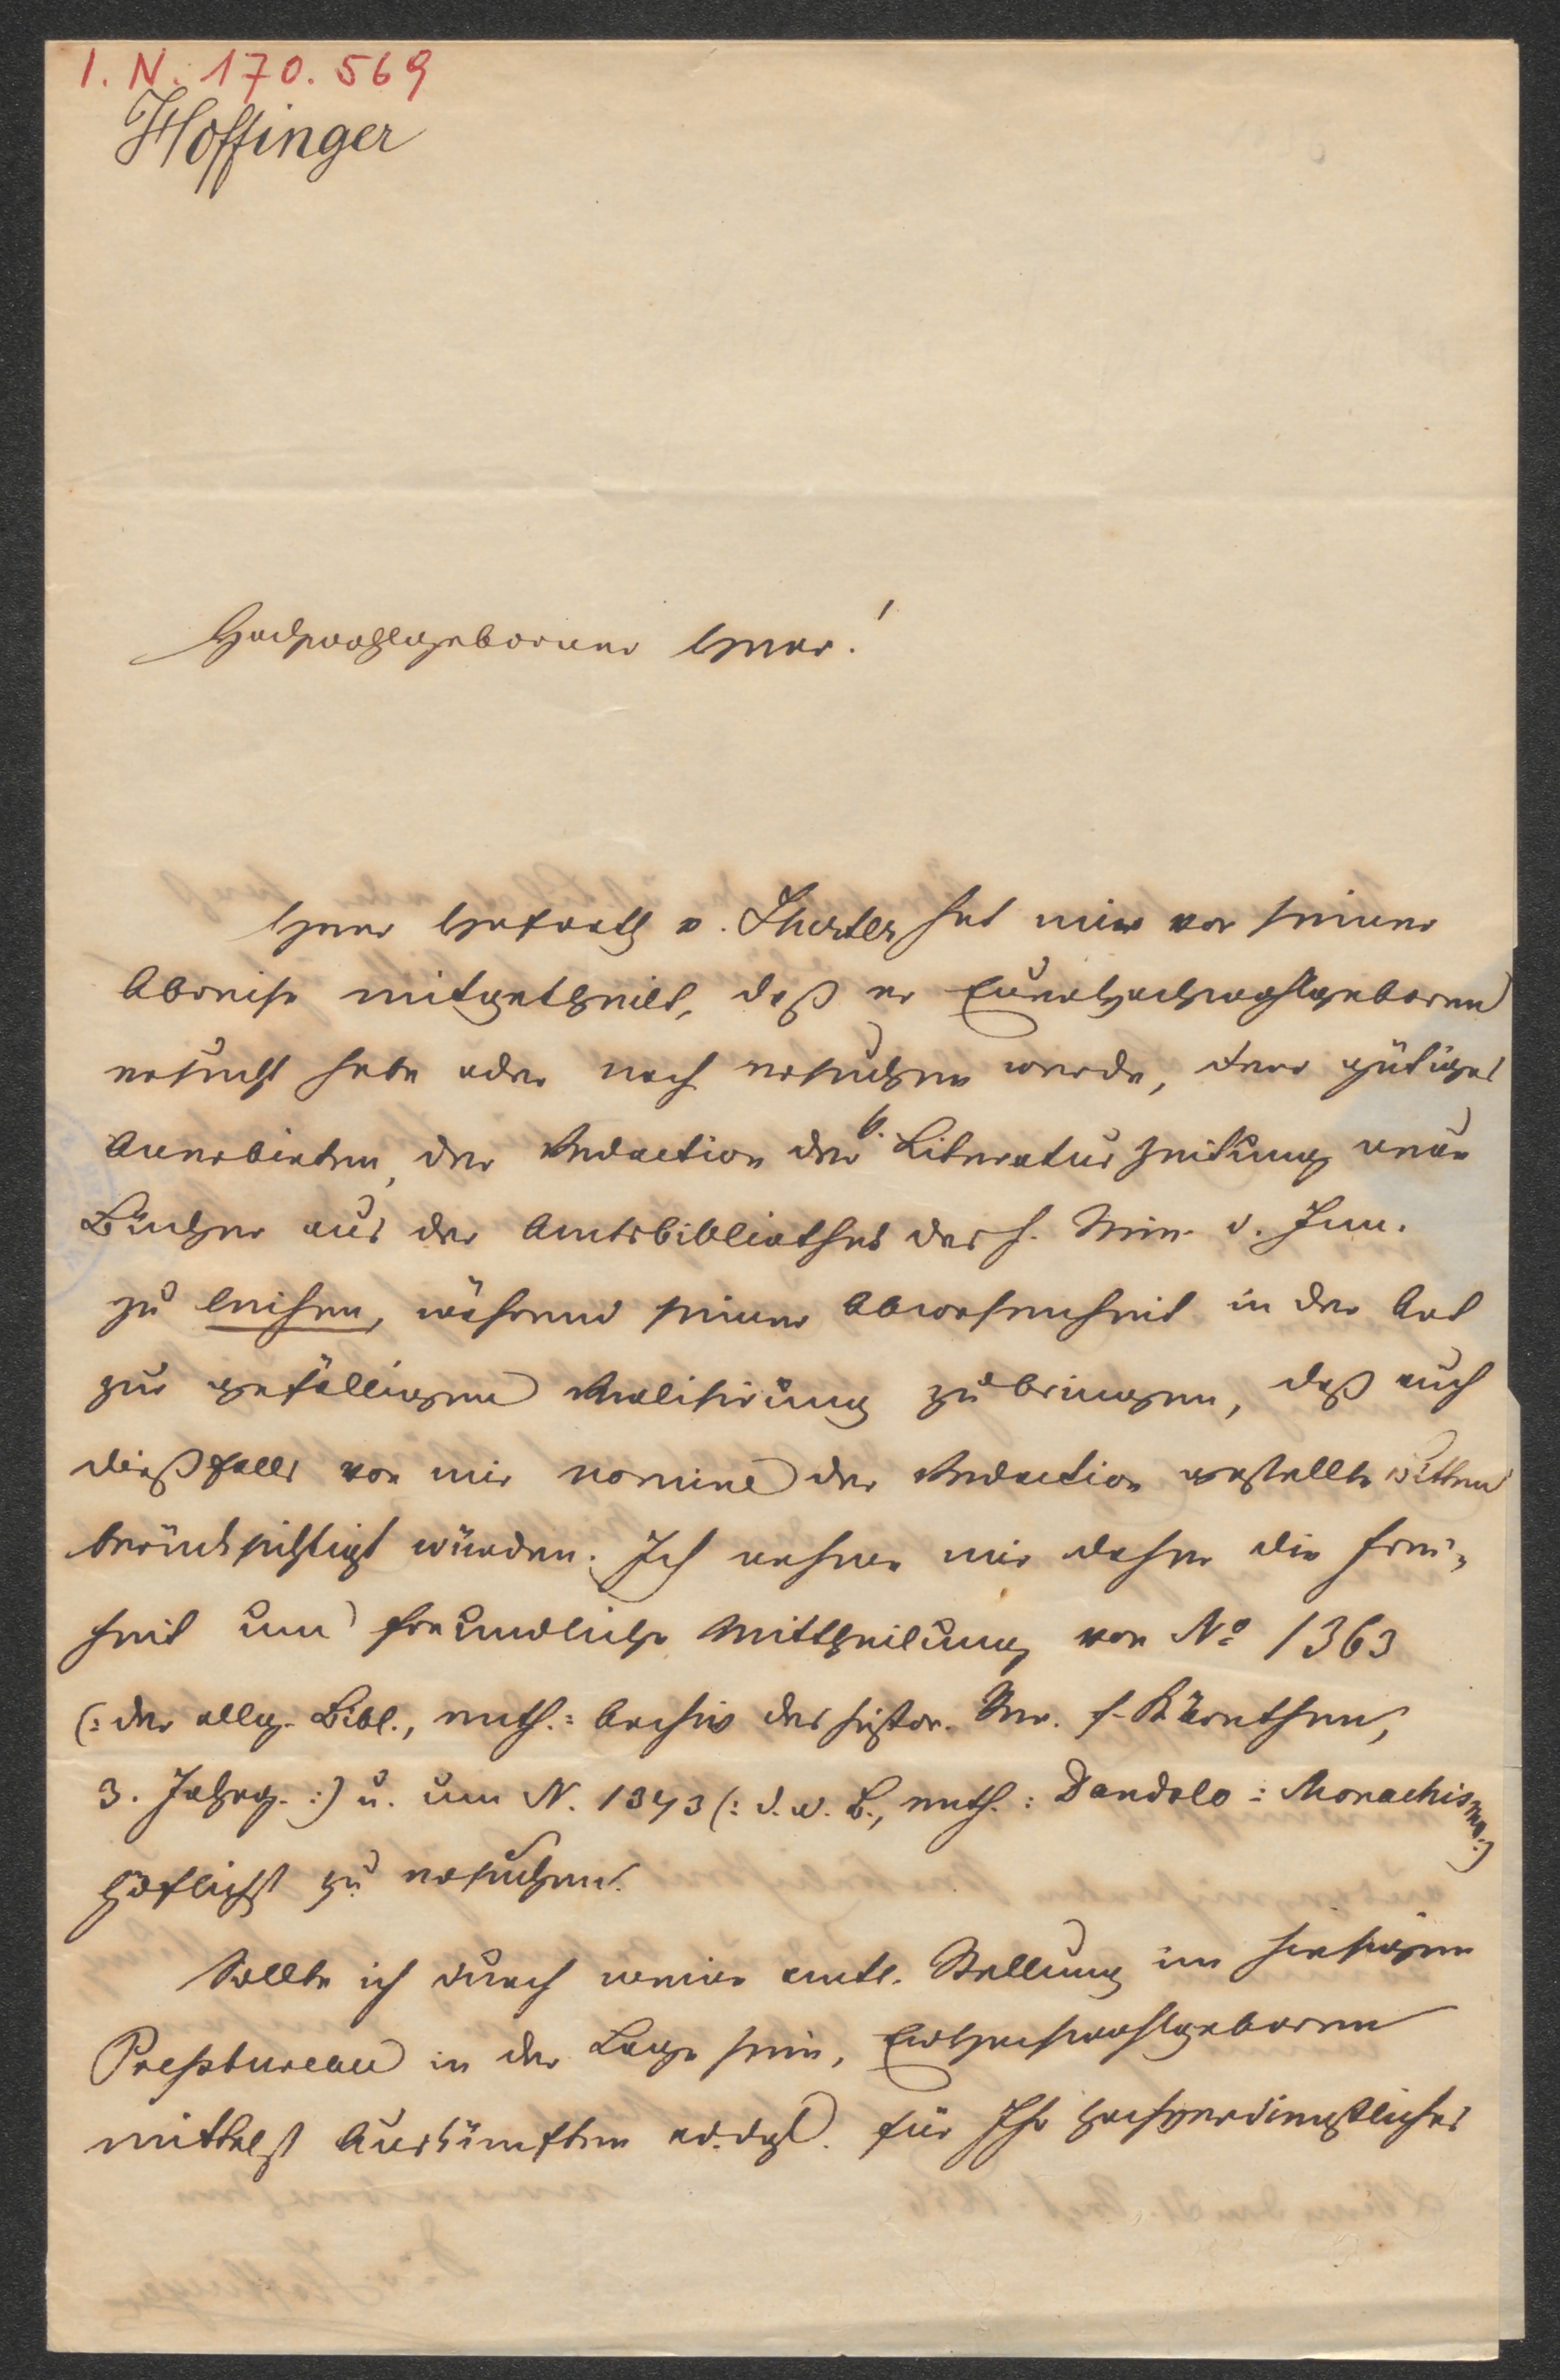 I. N. 170.569
Hoffinger
Hochwohlgeborner Herr!
Herr Hofrath v. Hurter hat mir vor seiner
Abreise mitgetheilt, daß er Euer Hochwohlgeboren
ersucht habe oder noch ersuchen werde, Ihr gütiges
Anerbieten, der Redaction der k. Literaturzeitung neue
Bücher aus der Amtsbibliothek des h. Min. d. Inn.
zu leihen, während seiner Abwesenheit in der Art
zur gefälligen Realisirung zu bringen, daß auch
dießfalls von mir nomine der Redaction gestellte Bitten
berücksichtigt würden. Ich nehme mir daher die Frei-
heit um freundliche Mittheilung von No 1363
(: der allg. Bibl., enth.: Archiv des histor. Ver. f. Kärnthen,
3. Jahrg. :) u. um N. 1343 (: d. a. B., enth.: Dandolo: Monachismo :)
höflichst zu ersuchen.
Sollte ich durch meine amtl. Stellung im hiesigen
Preßbureau in der Lage sein, Euer Hochwohlgeboren
mittelst Auskünften od. dgl. für Ihr hochverdienstliches